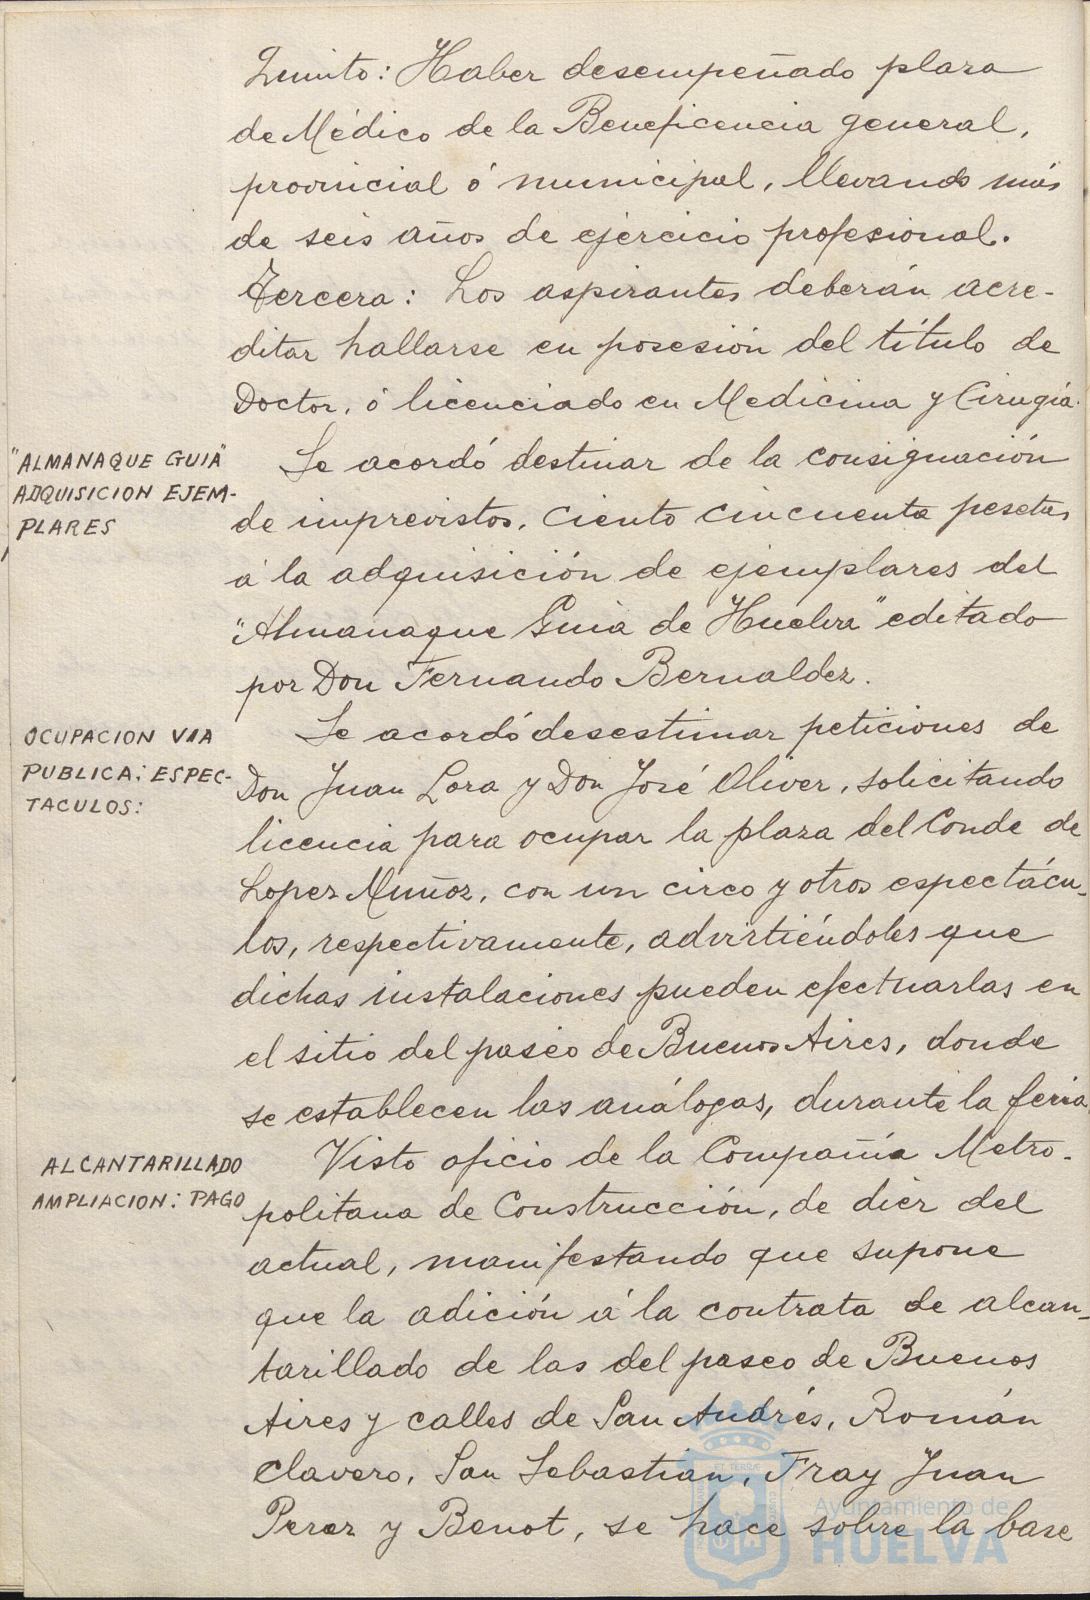 Quinto: Haber desempeñado plaza
de Médico de la Beneficencia general,
provincial ó municipal, llevando más
de seis años de ejercicio profesional.
Tercera: Los aspirantes deberán acre-
ditar hallarse en posesión del título de
Doctor, ó licenciado en Medicina y Cirugía.
"ALMANAQUE GUIA"
ADQUISICION EJEM-
PLARES
Se acordó destinar de la consignación
de imprevistos, ciento cincuenta pesetas
á la adquisición de ejemplares del
"Almanaque Guia de Huelva" editado
por Don Fernando Bernaldez.
OCUPACION VIA
PUBLICA: ESPEC-
TACULOS:
Se acordó desestimar peticiones de
Don Juan Lora y Don José Oliver, solicitando
licencia para ocupar la plaza del Conde de
Lopez Muñoz, con un circo y otros espectácu-
los, respectivamente, advirtiéndoles que
dichas instalaciones pueden efectuarlas en
el sitio del paseo de Buenos Aires, donde
se establecen las análogas, durante la feria
ALCANTARILLADO
AMPLIACION: PAGO
Visto oficio de la Compañía Metro-
politana de Construcción, de diez del
actual, manifestando que supone
que la adición á la contrata de alcan-
tarillado de las del paseo de Buenos
Aires y calles de San Andrés, Román
Clavero, San Sebastian, Fray Juan
Perez y Benot, se hace sobre la base
Ayuntamiento de
HUELVA